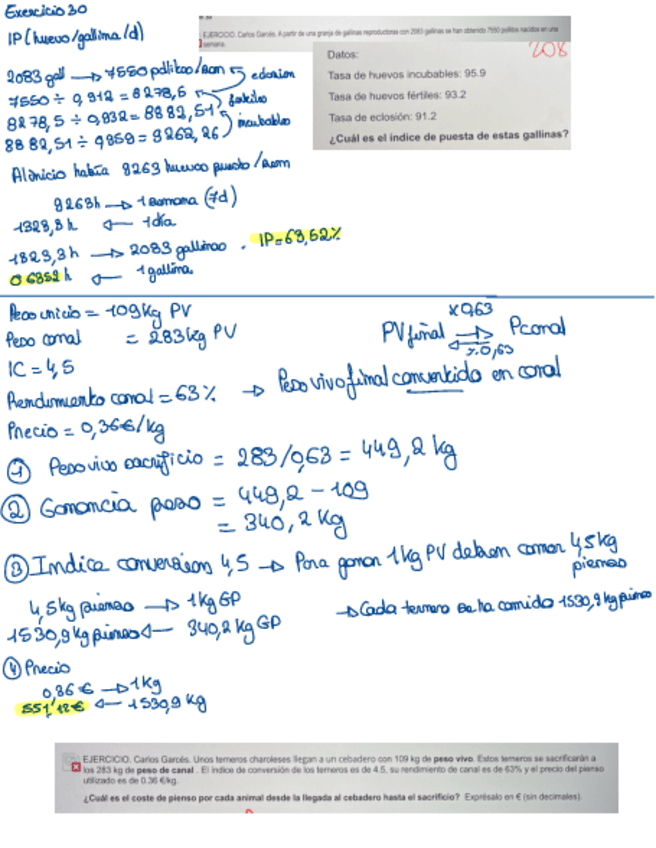 Exercicio 30
EJERCICIO. Carlos Garcés. A partir de una granja de gallinas reproductoras con 2083 gallinas se han obtenido 7550 pollitos nacidos en una semana.
IP (huevo/gallina/d)
208
Datos:
Tasa de huevos incubables: 95.9
Tasa de huevos fértiles: 93.2
Tasa de eclosión: 91.2
¿Cuál es el índice de puesta de estas gallinas?
2083 gall → 7550 pollitos/sem
eclosion
7550 ÷ 0,912 = 8278,5
fertiles
8278,5 ÷ 0,932 = 8882,51
incubables
8882,51 ÷ 0,959 = 9262,26
Al inicio había 9263 huevos puesto/sem
9263h → 1 semana (7d)
1323,3 h ← 1 día
1323,3 h → 2083 gallinas . IP=63,52%
0,6352 h ← 1 gallina
Peso inicio = 109 Kg PV
Peso canal = 283 kg PV
IC = 4,5
Rendimiento canal = 63% → Peso vivo final convertido en canal
Precio = 0,36€/kg
x0,63
PV final ⇄ Pcanal
÷0,63
① Peso vivo sacrificio = 283/0,63 = 449,2 kg
② Ganancia peso = 449,2 - 109
= 340,2 Kg
③ Indice conversion 4,5 → Para ganar 1 kg PV deben comer 4,5 kg
pienso
4,5 kg pienso → 1 Kg GP
1530,9 kg pienso ← 340,2 Kg GP
→ Cada ternero se ha comido 1530,9 kg pienso
④ Precio
0,36 € → 1 Kg
551,12€ ← 1530,9 Kg
EJERCICIO. Carlos Garcés. Unos terneros charoleses llegan a un cebadero con 109 kg de peso vivo. Estos terneros se sacrificarán a
los 283 kg de peso de canal . El índice de conversión de los terneros es de 4.5, su rendimiento de canal es de 63% y el precio del pienso
utilizado es de 0.36 €/kg.
¿Cuál es el coste de pienso por cada animal desde la llegada al cebadero hasta el sacrificio? Exprésalo en € (sin decimales).